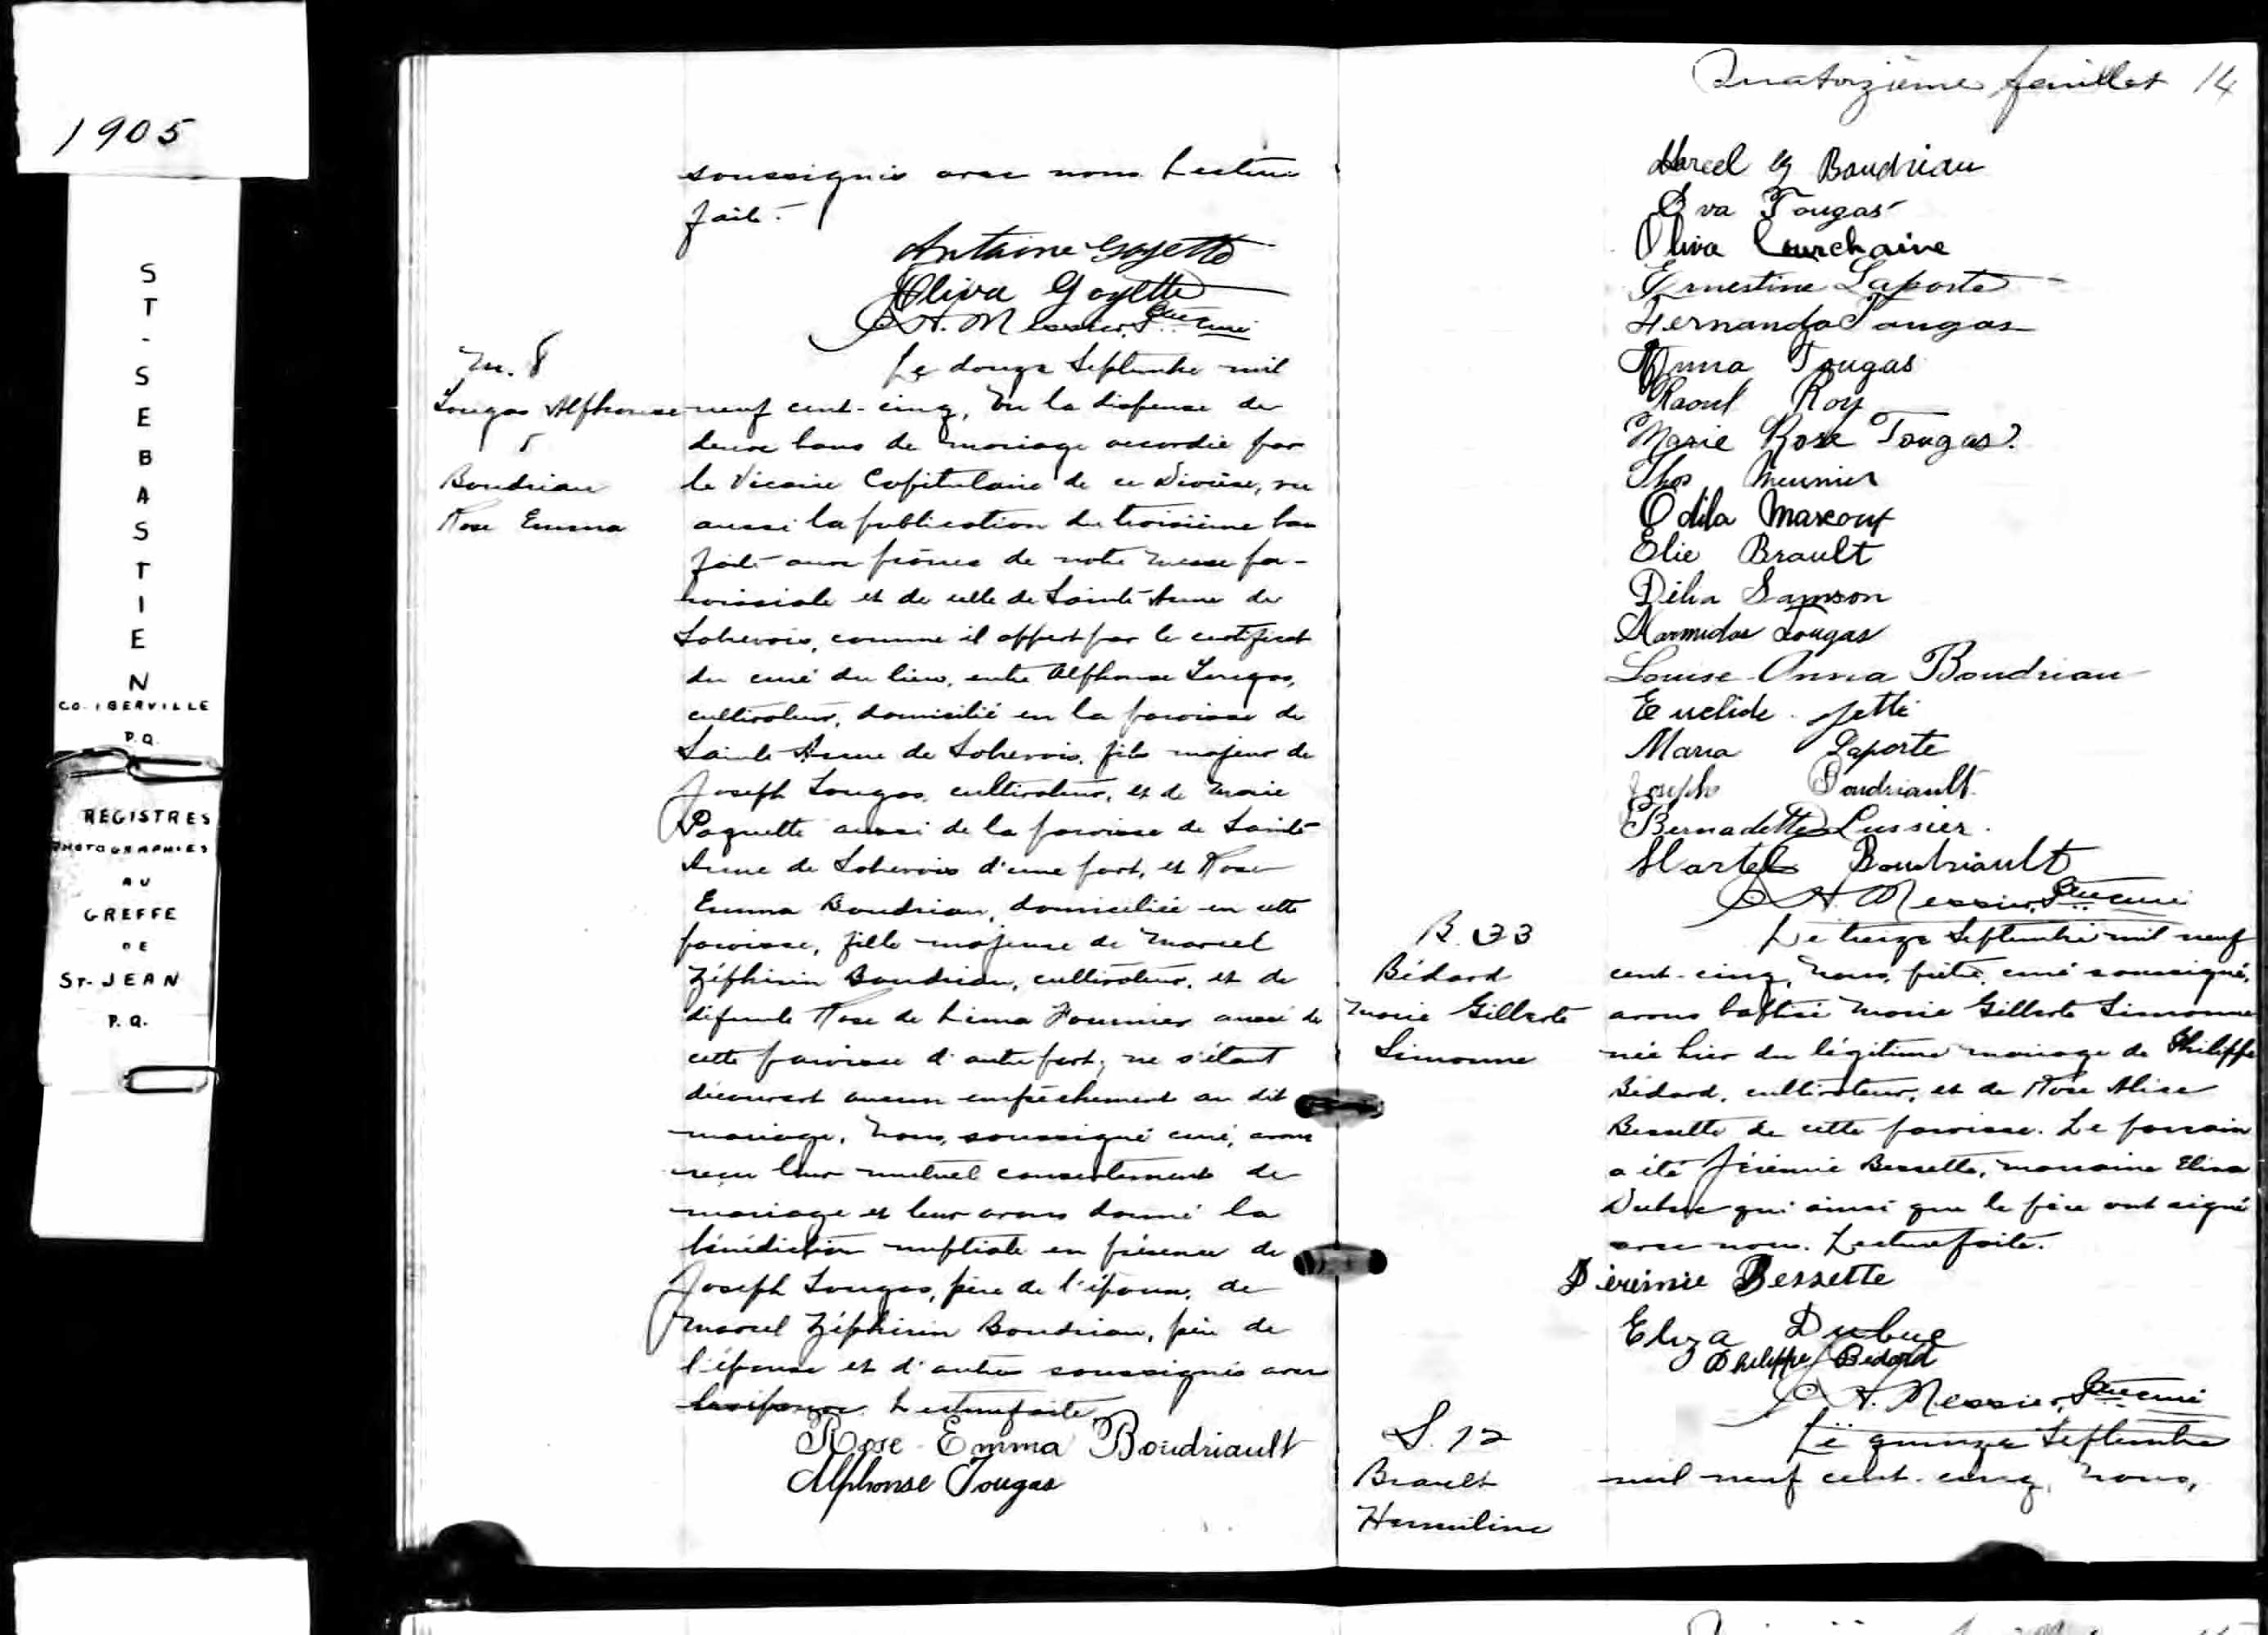 1905
ST-SEBASTIEN
CO. IBERVILLE
P.Q.
REGISTRES
PHOTOGRAPHIES
AU
GREFFE
DE
ST-JEAN
P.Q.
soussignés avec nous. Lecture
faite.
Antoine Goyette
Oliva Goyette
A. Messier, Ptre curé
M. 8
Tougas Alphonse
&
Boudriau
Rose Emma
Le douze Septembre mil
neuf cent-cinq, Vu la dispense de
deux bans de mariage accordée par
le Vicaire Capitulaire de ce Diocèse, vu
aussi la publication du troisième ban
faite aux prônes de notre messe pa-
roissiale et de celle de Sainte-Anne de
Sabrevois, comme il appert par le certificat
du curé du lieu, entre Alphonse Tougas,
cultivateur, domicilié en la paroisse de
Sainte-Anne de Sabrevois, fils majeur de
Joseph Tougas, cultivateur, et de Marie
Paquette aussi de la paroisse de Sainte-
Anne de Sabrevois d'une part, et Rose
Emma Boudriau, domiciliée en cette
paroisse, fille majeure de Marcel
Zéphirin Boudriau, cultivateur, et de
défunte Rose de Lima Fournier aussi de
cette paroisse d'autre part; ne s'étant
découvert aucun empêchement au dit
mariage, Nous, soussigné curé, avons
reçu leur mutuel consentement de
mariage et leur avons donné la
bénédiction nuptiale en présence de
Joseph Tougas, père de l'époux, de
Marcel Zéphirin Boudriau, père de
l'épouse et d'autres soussignés avec
les époux. Lecture faite.
Rose-Emma Boudriault
Alphonse Tougas
Quatorzième feuillet 14
Marcel Z Boudriau
Eva Tougas
Oliva Courchaine
Ernestine Laporte
Fernando Tougas
Anna Tougas
Raoul Roy
Marie Rose Tougas
Thos Meunier
Odila Marcoux
Elie Brault
Délia Samson
Narmidas Tougas
Louise-Anna Boudriau
Euclide Jetté
Maria Laporte
Joseph Boudriault
Bernadette Lussier
Martel Boudriault
A. Messier, Ptre curé
B. 33
Bédard
Marie Gilberte
Simonne
Le treize Septembre mil neuf
cent-cinq, Nous, prêtre, curé soussigné,
avons baptisé Marie Gilberte Simonne
née hier du légitime mariage de Philippe
Bédard, cultivateur, et de Rose Alice
Bessette de cette paroisse. Le parrain
a été Jérémie Bessette, marraine Eliza
Dubuc qui ainsi que le père ont signé
avec nous. Lecture faite.
Jérémie Bessette
Eliza Dubuc
Philippe Bédard
A. Messier, Ptre curé
S. 12
Brault
Hermiline
Le quinze Septembre
mil neuf cent-cinq, Nous,